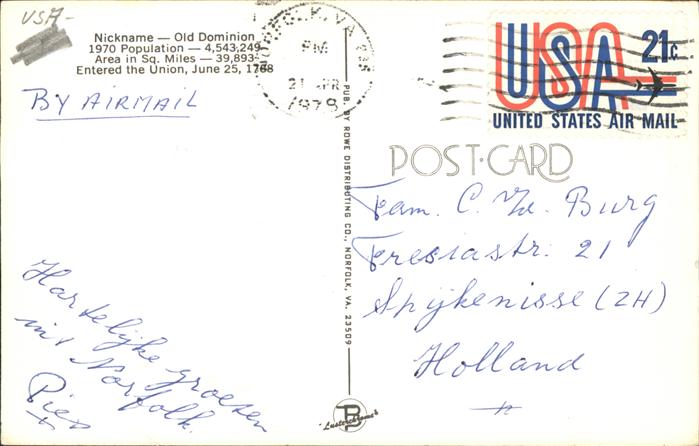 USA-
Nickname — Old Dominion
1970 Population — 4,543,249
Area in Sq. Miles — 39,893
Entered the Union, June 25, 1788
BY AIRMAIL
NORFOLK, VA
PM
21 APR
1978
USA 21c
UNITED STATES AIR MAIL
POST-CARD
PUB. BY ROWE DISTRIBUTING CO., NORFOLK, VA. 23509
Fam. C. Burg
Fresiastr. 21
Spijkenisse (ZH)
Holland
Hartelijke groeten
uit Norfolk.
Pies
"Lusterchrome"